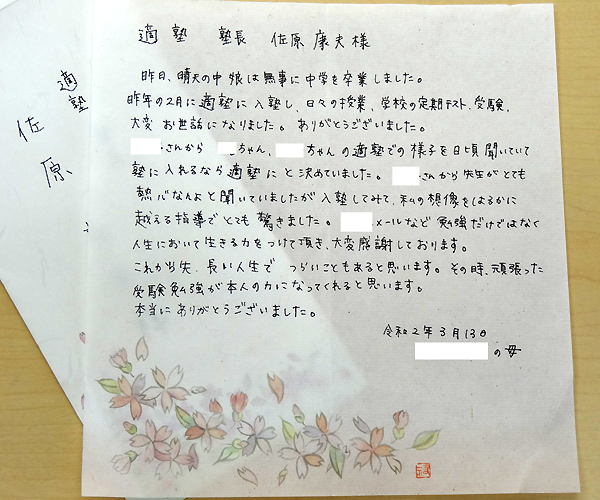 適塾 塾長 佐原康夫様
昨日、晴天の中 娘は無事に中学を卒業しました。
昨年の2月に適塾に入塾し、日々の授業、学校の定期テスト、受験、
大変お世話になりました。ありがとうございました。
さんから ちゃん、 ちゃんの適塾での様子を日頃聞いていて
塾に入れるなら適塾にと決めていました。 さんから先生がとても
熱心なんよと聞いていましたが入塾してみて、私の想像をはるかに
越える指導でとても驚きました。 メールなど勉強だけではなく
人生において生きる力をつけて頂き、大変感謝しております。
これから先、長い人生で つらいこともあると思います。その時、頑張った
受験勉強が本人の力になってくれると思います。
本当にありがとうございました。
令和2年3月13日
の母
適塾
佐原